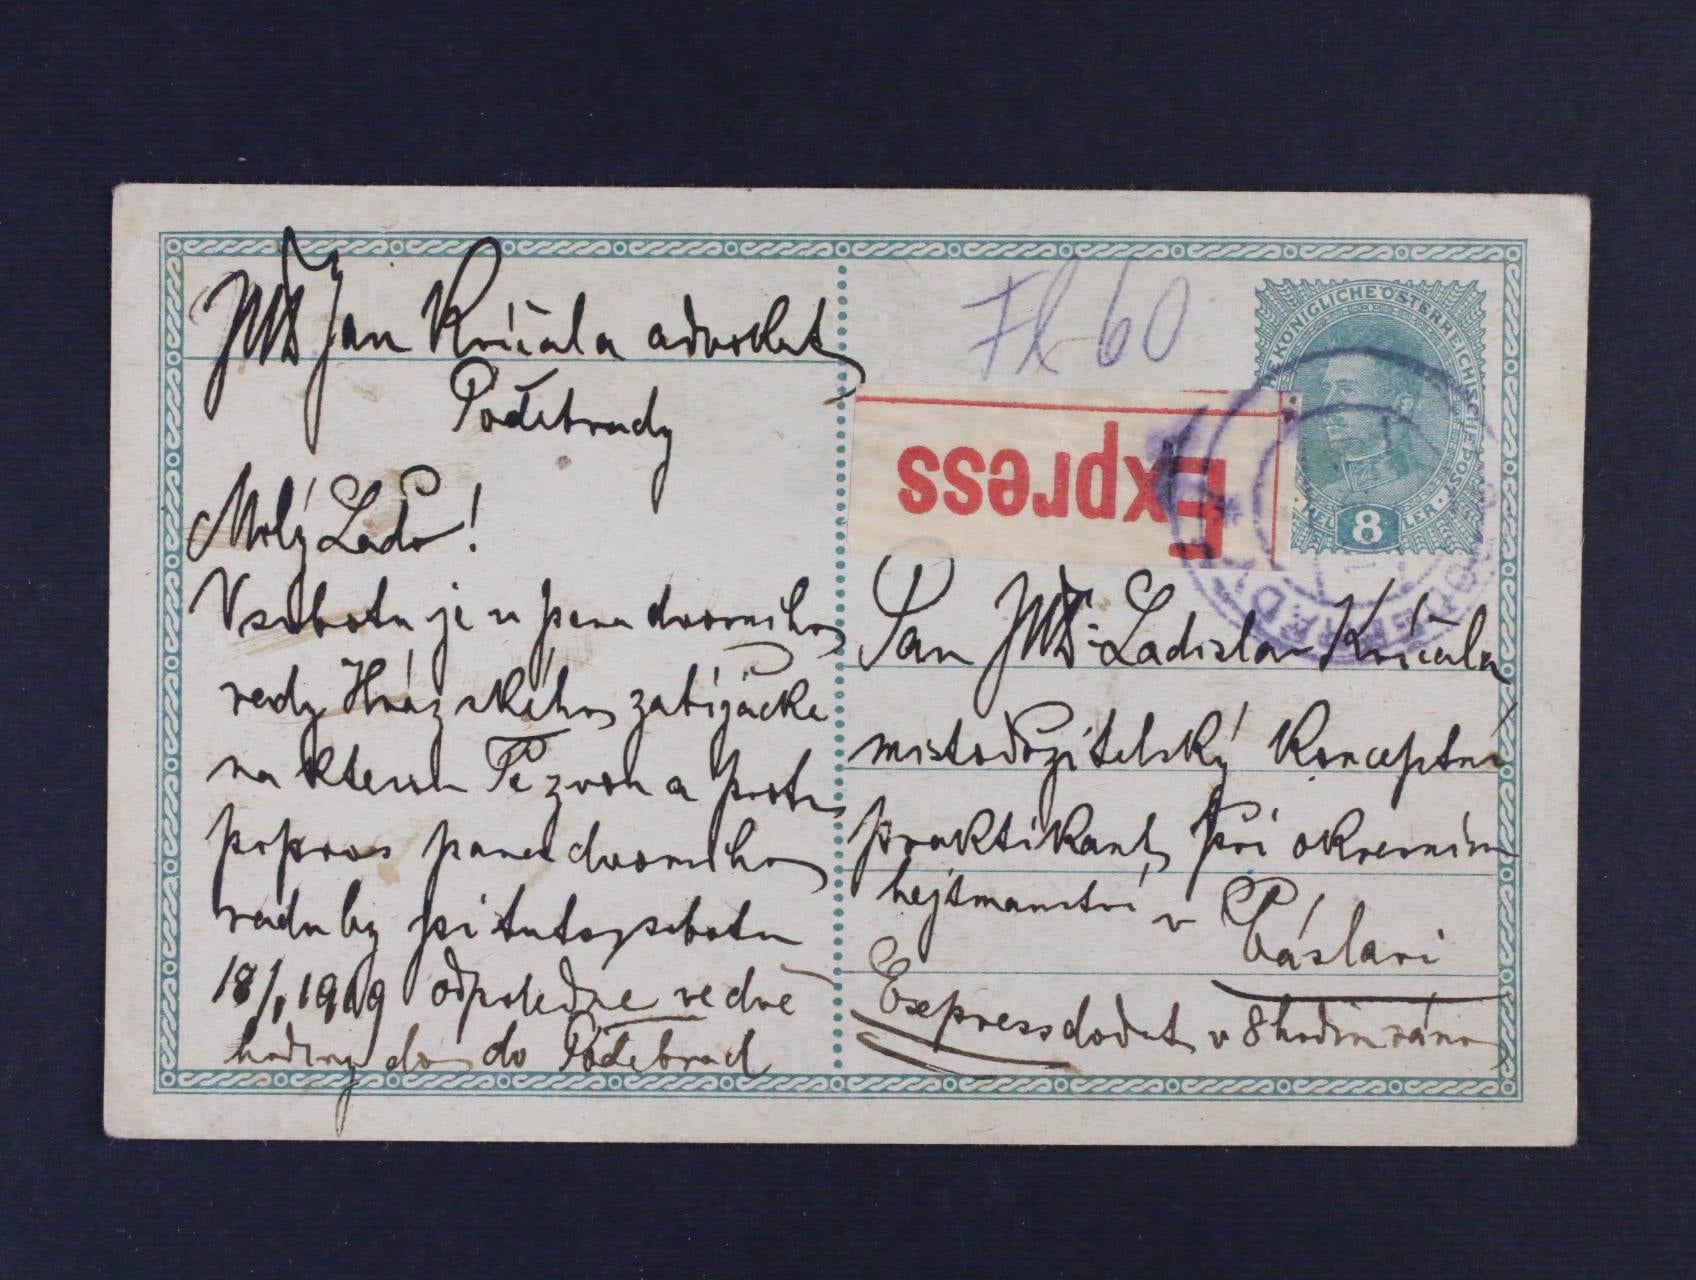 JUDr Jan Kříčala advokát
Poděbrady
Milý Lado!
V sobotu je u pana dvorního
rady zabíjačka
na kterou Tě zvou a proto
popros pana dvorního
radu by Ti tuto sobotu
18/1 1919 odpoledne ve dvě
hodiny do Poděbrad
Fh 60
KAISERLICHE KÖNIGLICHE ÖSTERREICHISCHE POST
8
HELLER
Express
Pan JUDr Ladislav Kříčala
místodržitelský konceptní
praktikant při okresním
hejtmanství v Čáslavi
Express dodat v 8 hodin ráno